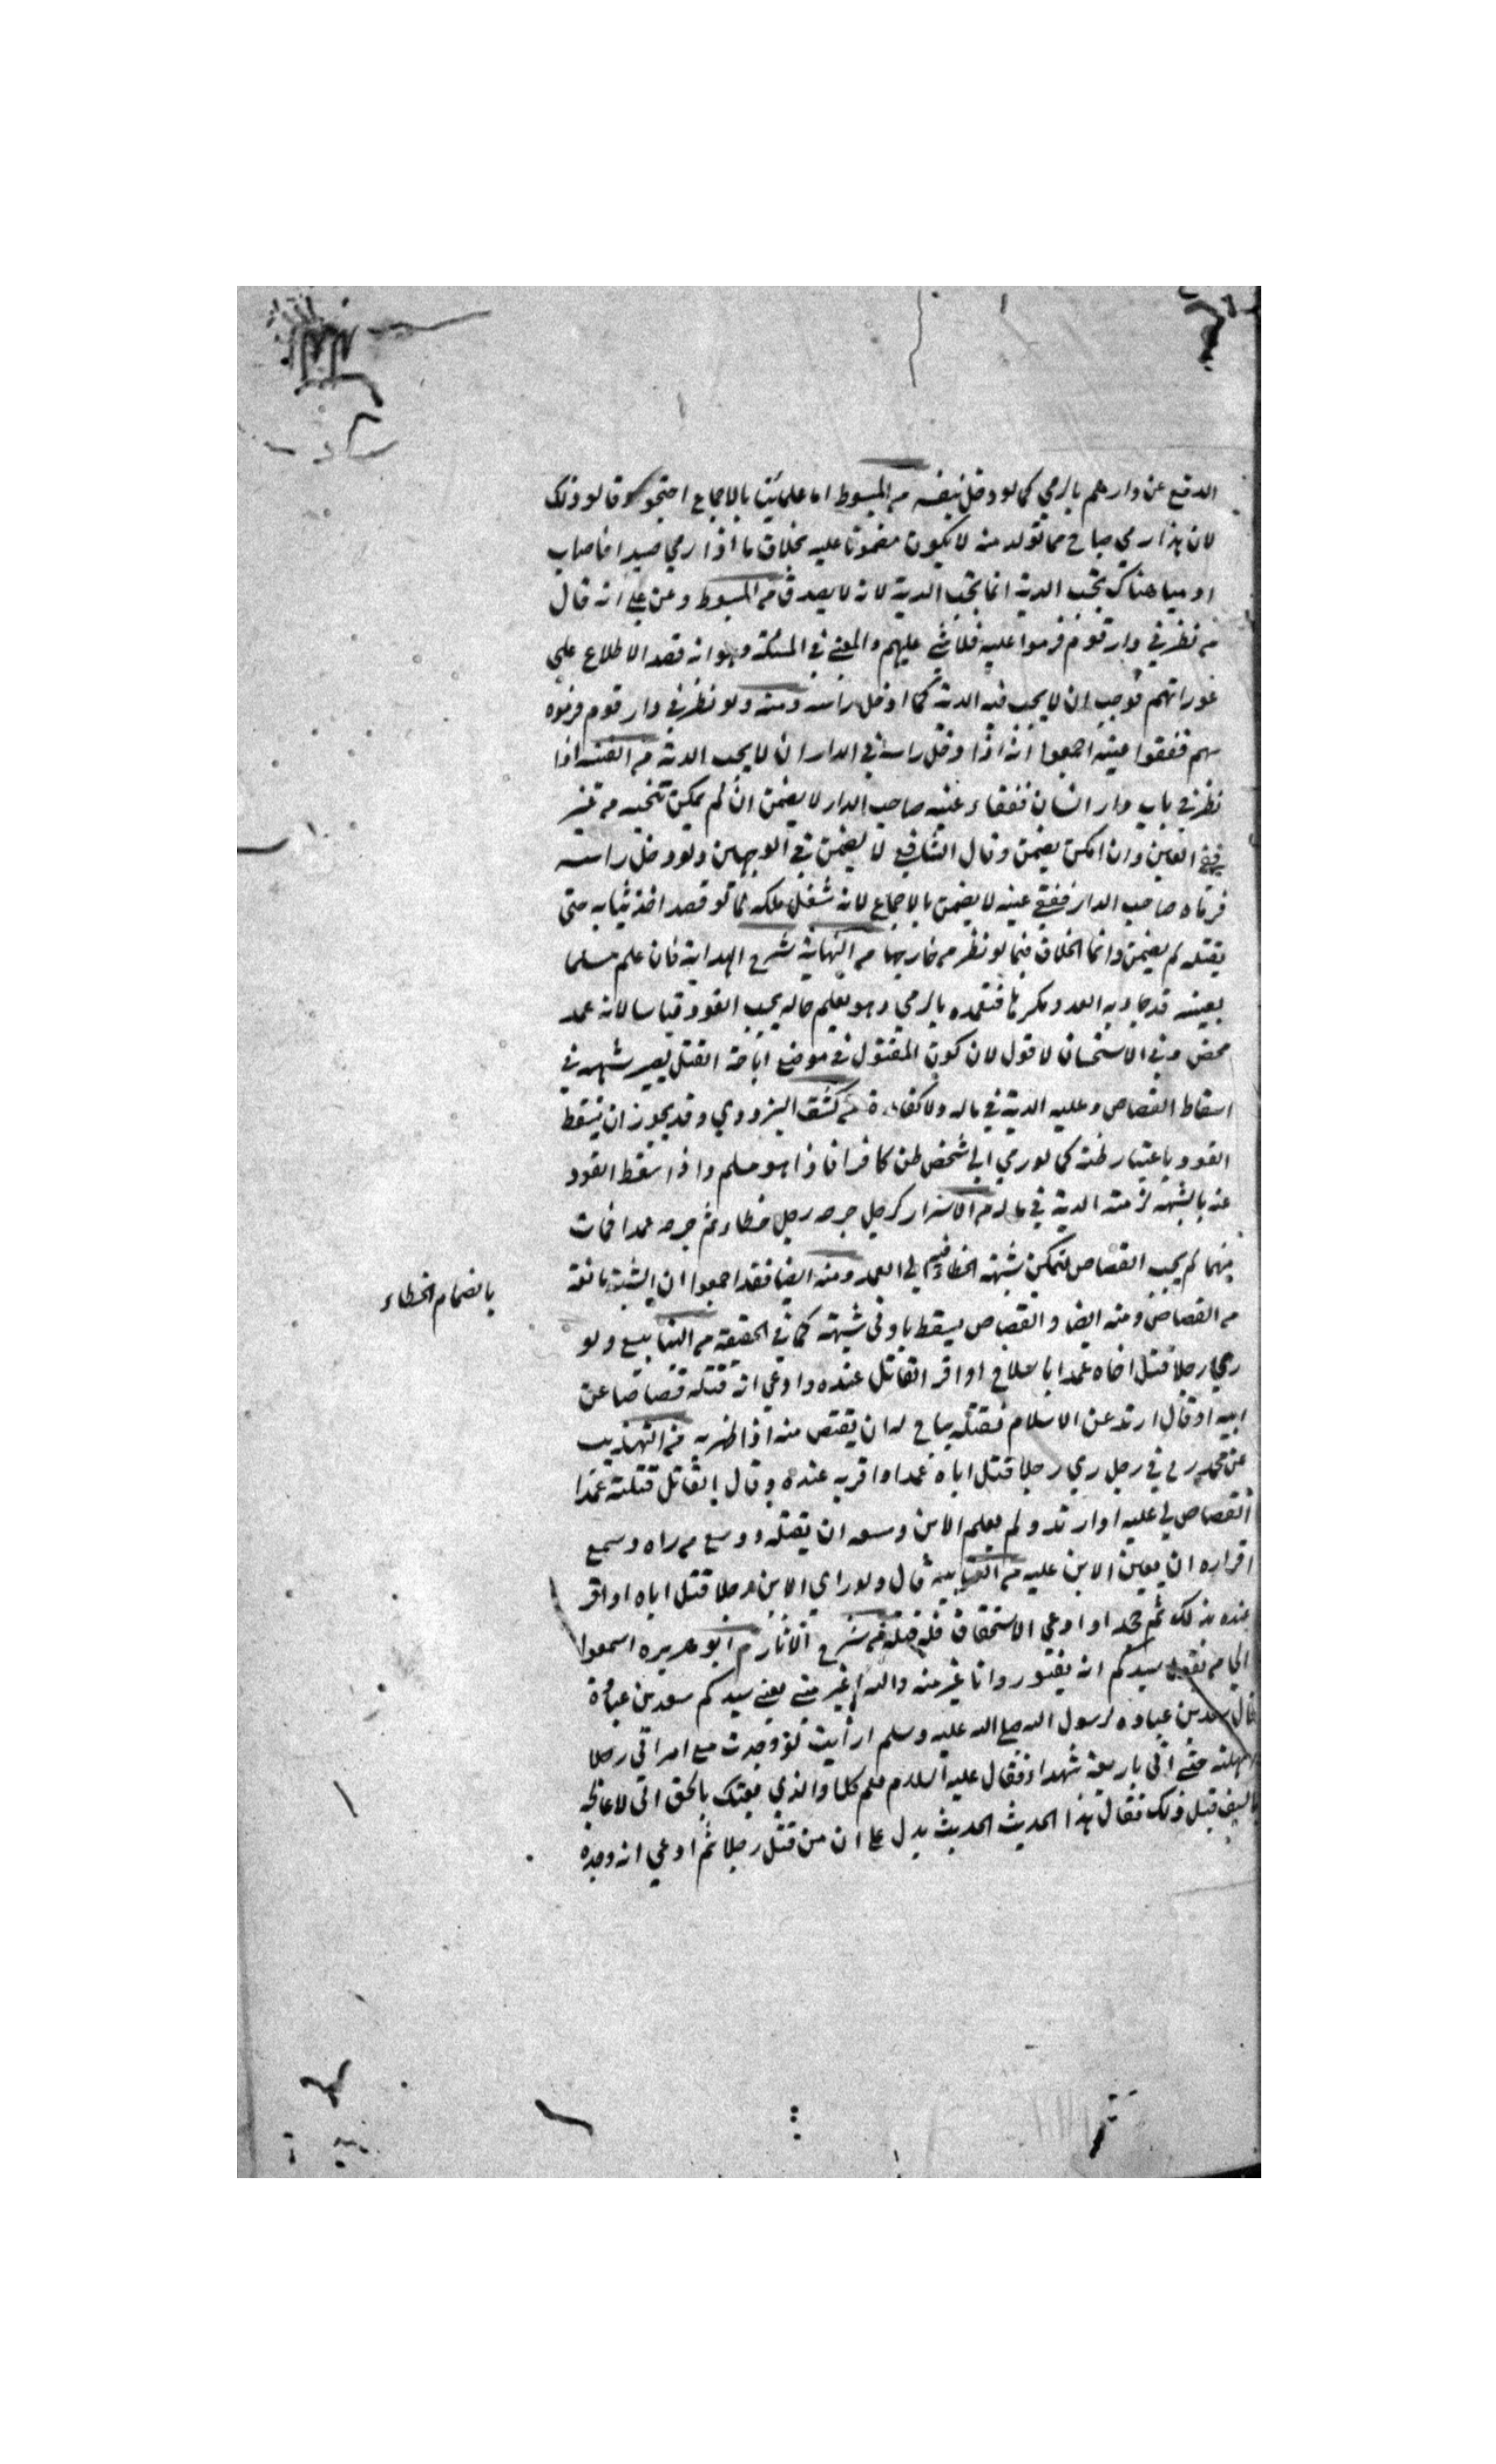 الدفع عن دارهم بالرمي كما لو دخل بنفسه من المبسوط اما علمائنا بالاجماع احتجوا وقالوا وذلك
لان هذا رمي مباح مما تولد منه لا يكون مضمونا عليه بخلاف ما اذا رمي صيدا فاصاب
ادميا هناك تجب الدية انما تجب الدية لانه لا يصدق من المبسوط وعن علي انه قال
من نظر في دار قوم فرموا عليه فلا شئ عليهم والمعنى في المسئلة وهو انه قصد الاطلاع علي
عوراتهم فوجب ان لا يجب فيه الدية كما ادخل رأسه ومنه ولو نظر في دار قوم فرموه
بسهم ففقوا عينه اجمعوا انه اذا دخل راسه في الدار ان لا يجب الدية من القنيه اذا
نظر في باب دار انسان ففقاء عينه صاحب الدار لا يضمن ان لم يمكن تنحيه من غير
فقئ العين وان امكن يضمن وقال الشافعي لا يضمن في الوجهين ولو دخل راسه
فرماه صاحب الدار ففقئ عينه لا يضمن بالاجماع لانه شغل ملكه كما لو قصد اخذ ثيابه حتى
يقتله لم يضمن وانما الخلاف فيما لو نظر من خارجها من النهاية شرح الهداية فان علم مسلما
بعينه قد جاء به العدو مكرها فتعمده بالرمي وهو يعلم حاله يجب القود قياسا لانه عمد
محض وفي الاستحسان لا قول لان كون المقتول في موضع اباحة القتل يصير شبهه في
اسقاط القصاص وعليه الدية في ماله ولا كفارة من كشف البزدوي وقد يجوز ان يسقط
القود باعتبار ظنه كما لو رمي الي شخص ظن كافرا فاذا هو مسلم واذا سقط القود
عنه بالشبهه لزمته الدية في ماله من الاسرار كرجل جرحه رجل خطاء ثم جرحه عمدا فمات
منهما لم يجب القصاص لتمكن شبهة الخطاء فيه الي العمد ومنه ايضا فقد اجمعوا ان الشبهة مانعة
بانضمام الخطاء
من القصاص ومنه ايضا والقصاص يسقط بادنى شبهة كما في الحقيقة من الينابيع ولو
رمي رجلا قتل اخاه عمدا بالسلاح او اقر القاتل عنده وادعي انه قتله قصاصا عن
ابيه او قال ارتد عن الاسلام فقتله يباح له ان يقتص منه اذا ظهر به من التهذيب
عن محمد رح في رجل رمي رجلا قتل اباه عمدا او اقر به عنده وقال القاتل قتلته عمدا
القصاص لي عليه او ارتد ولم يعلم الابن وسعه ان يقتله ووسع من راه وسمع
اقراره ان يعين الابن عليه من العتابيه قال ولو راي الابن رجلا قتل اباه او اقر
عنده بذلك ثم جحد او ادعي الاستحقاق فله قتله من شرح الاثار م ابو هريره اسمعوا
الي ما يقول سيدكم انه يغيور وانا غير منه والله اغير مني يعني سيدكم سعد بن عبادة
قال سعد بن عباده لرسول الله صلى الله عليه وسلم ارأيت لو وجدت مع امراتي رجلا
امهلته حتى اتي باربعة شهداء فقال عليه السلام نعم كلا والذي بعثك بالحق اني لاعالجه
بالسيف قبل ذلك فقال هذا الحديث الحديث يدل على ان من قتل رجلا ثم ادعي انه وجده